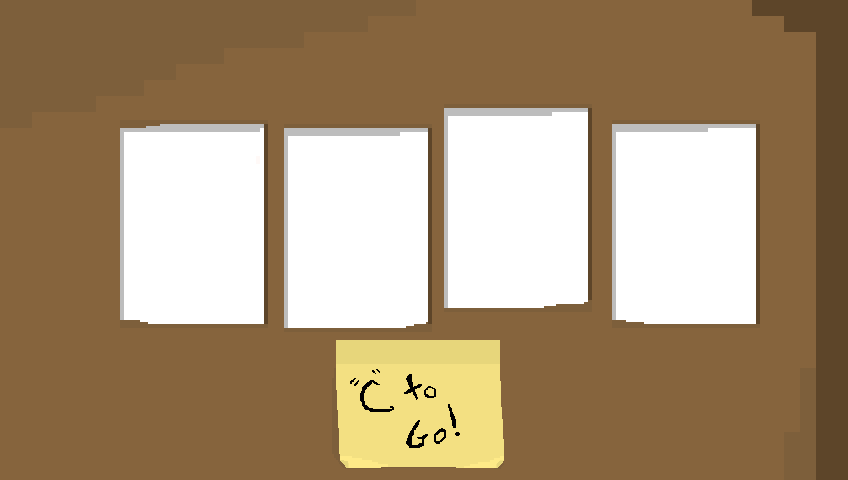 "C" to
Go!